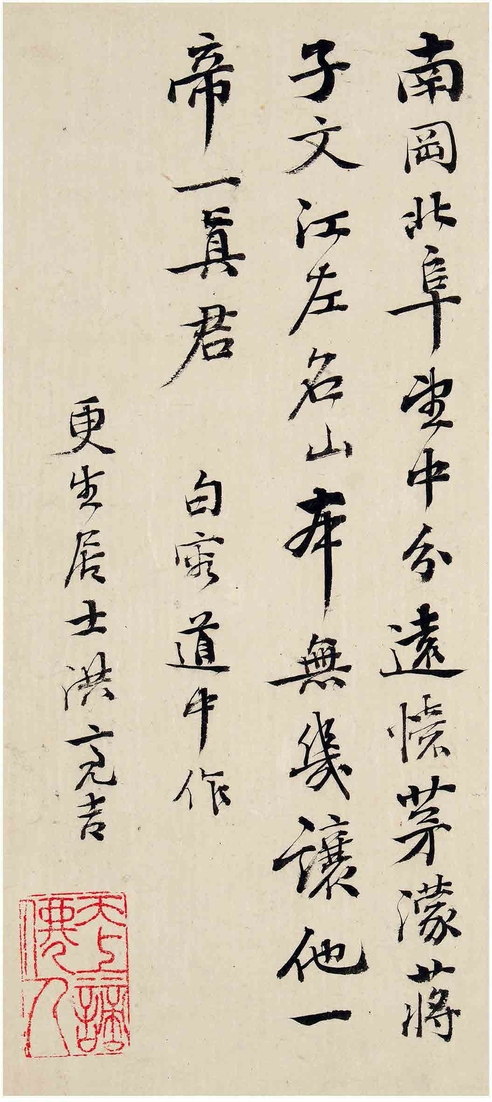 南岡北阜望中分遠懷茅濛蔣
子文江左名山本無幾讓他一
帝一眞君
句容道中作
更生居士洪亮吉
天上謫
僊人